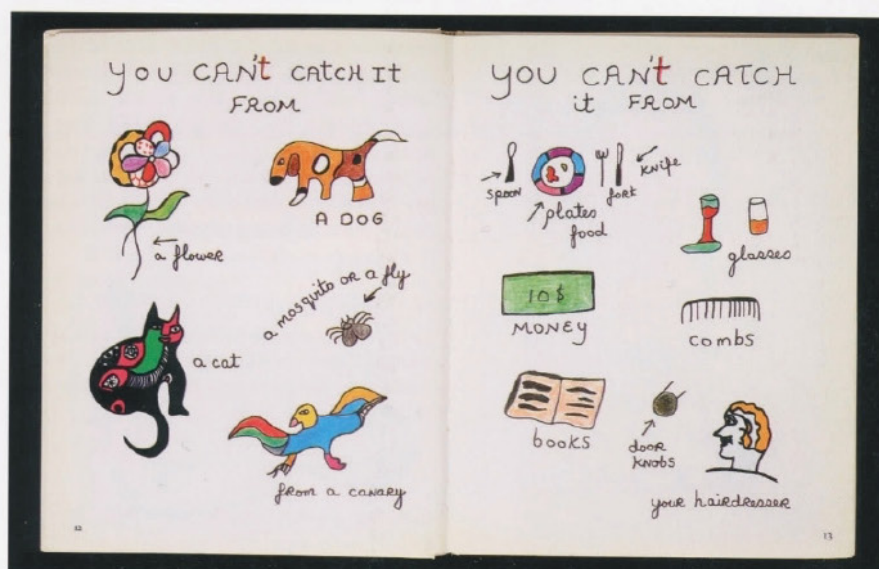 YOU CAN't CATCH It
FROM
a flower
A DOG
a mosquito OR a fly
a cat
from a canary
12
YOU CAN't CATCH
it FROM
spoon
plates
food
fork
knife
glasses
10$
MONEY
combs
books
dooR
KNOBS
your hairdresser
13